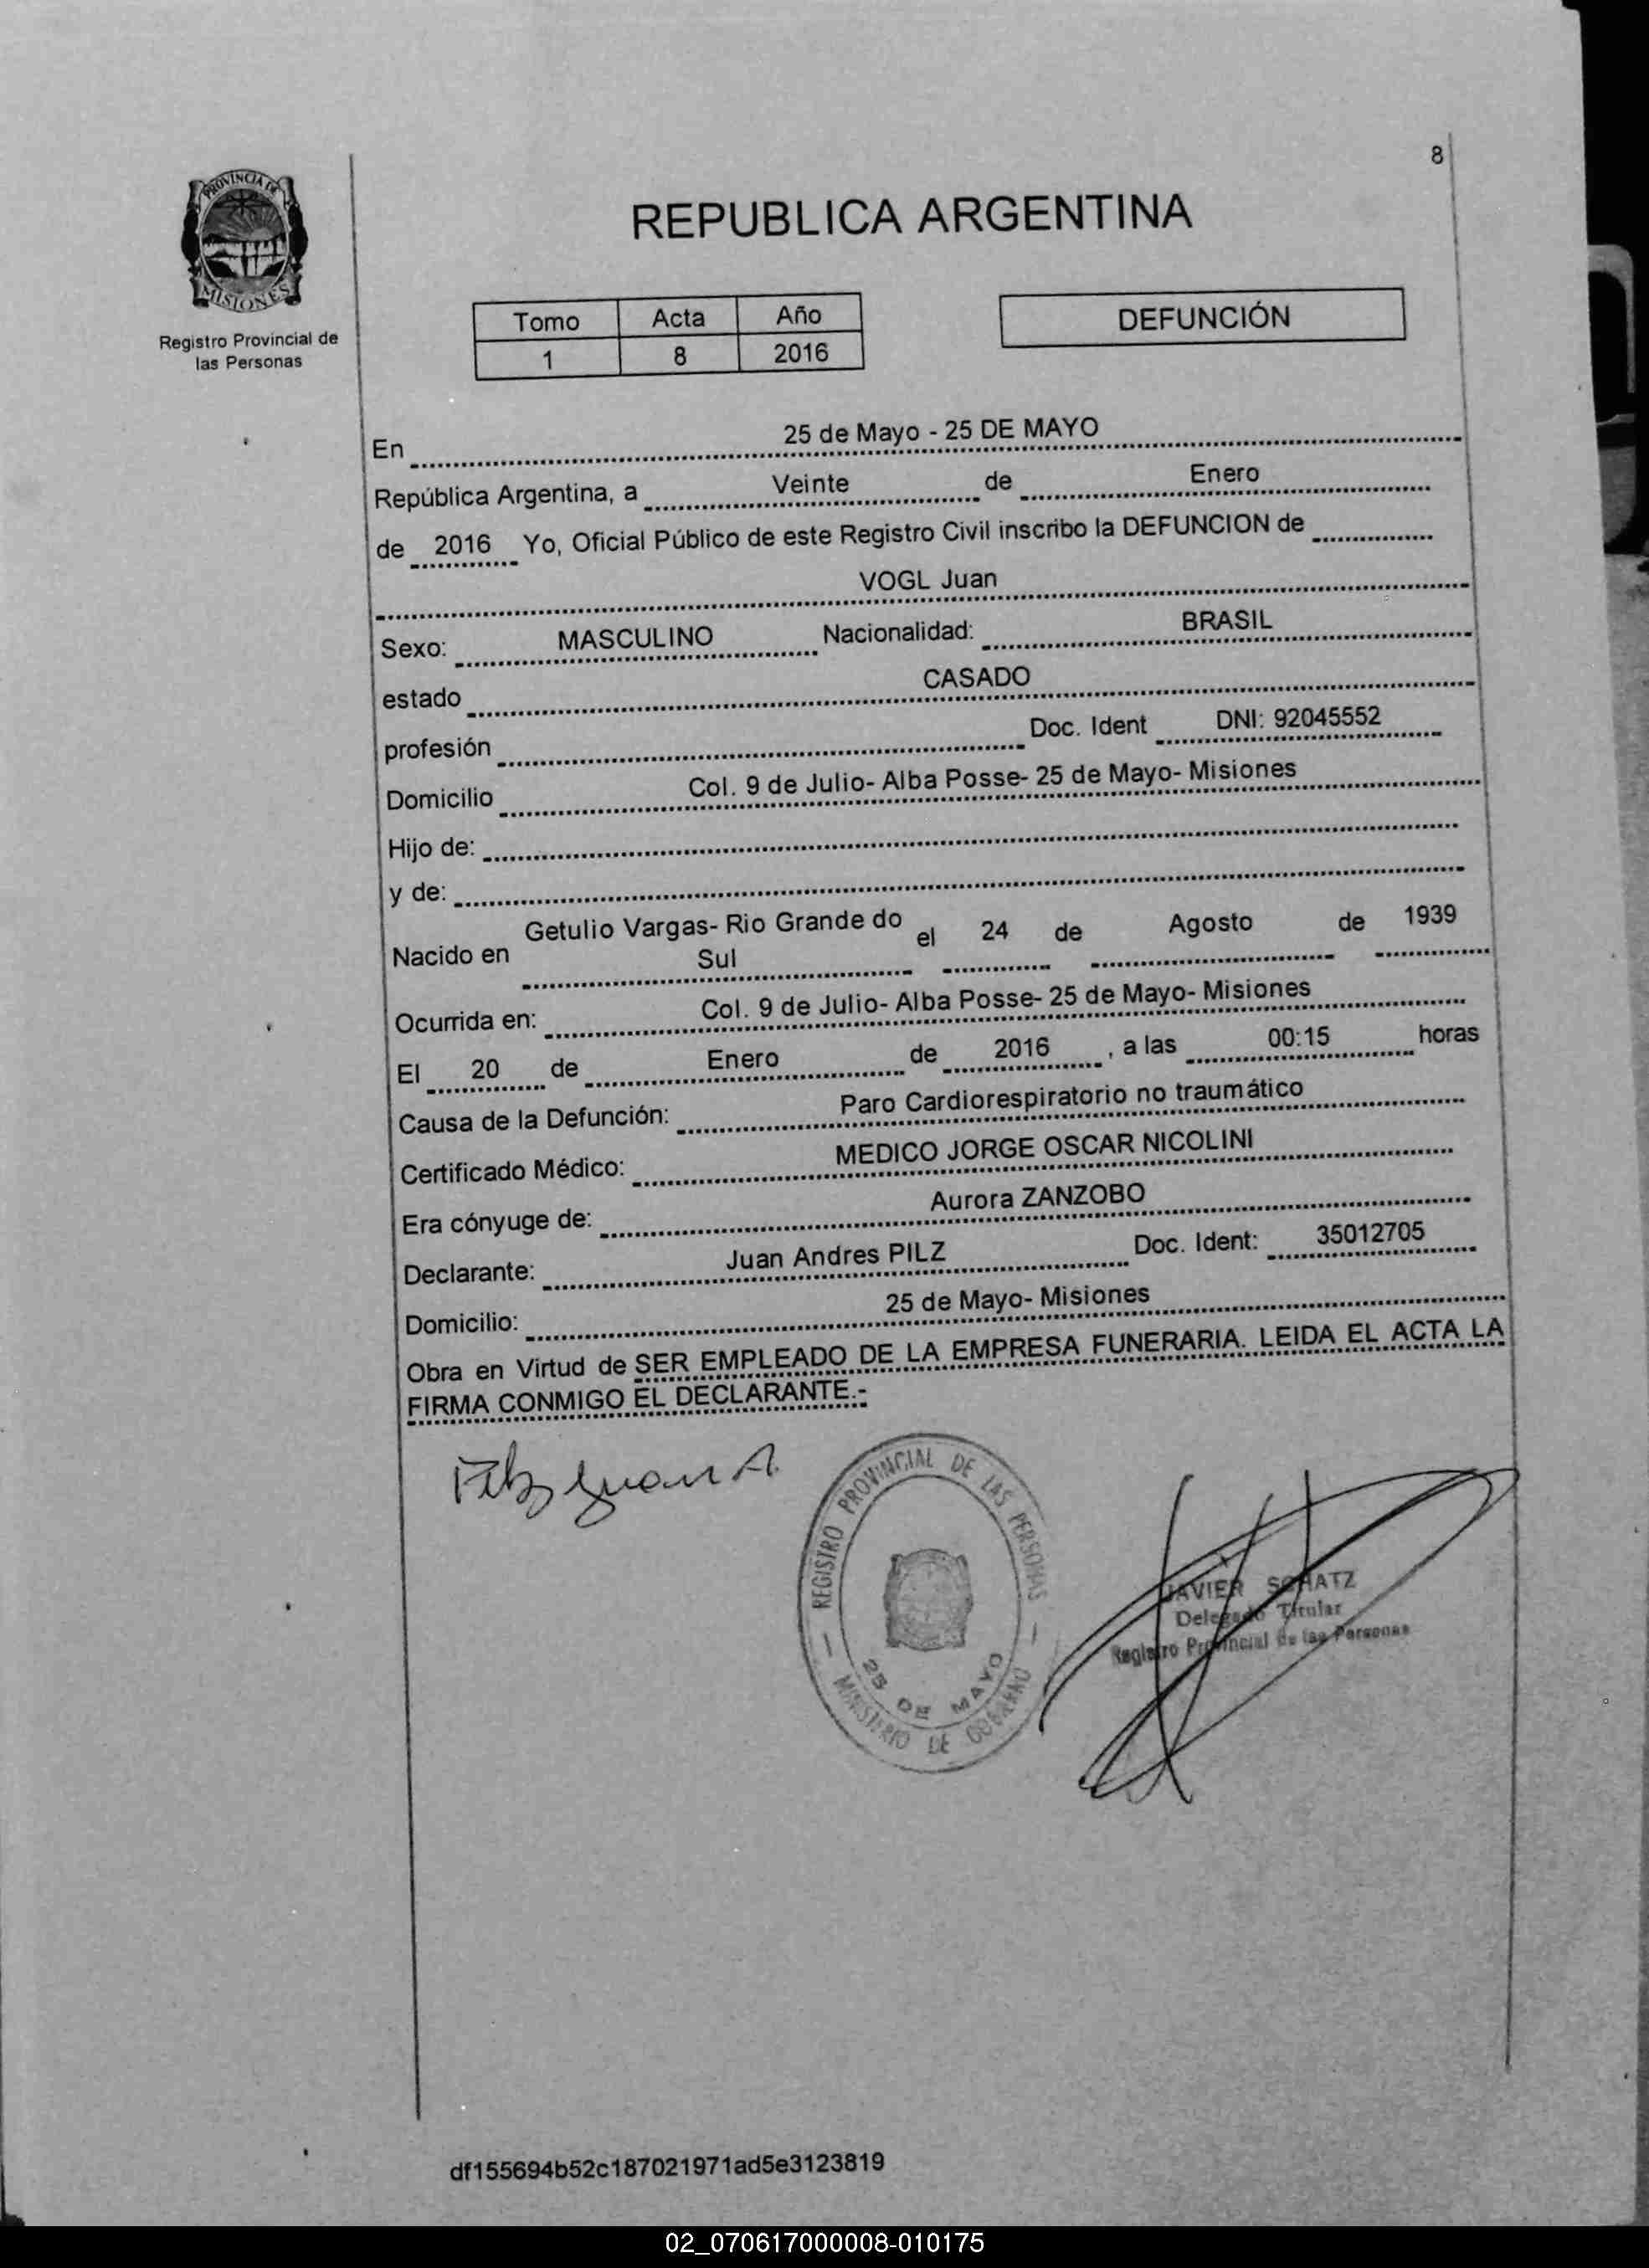 8
PROVINCIA DE
MISIONES
Registro Provincial de
las Personas
REPUBLICA ARGENTINA
Tomo Acta Año
1 8 2016
DEFUNCIÓN
En 25 de Mayo - 25 DE MAYO
República Argentina, a Veinte de Enero
de 2016 Yo, Oficial Público de este Registro Civil inscribo la DEFUNCION de
VOGL Juan
Sexo: MASCULINO Nacionalidad: BRASIL
estado CASADO
profesión Doc. Ident DNI: 92045552
Domicilio Col. 9 de Julio- Alba Posse- 25 de Mayo- Misiones
Hijo de:
y de:
Nacido en Getulio Vargas- Rio Grande do el 24 de Agosto de 1939
Sul
Ocurrida en: Col. 9 de Julio- Alba Posse- 25 de Mayo- Misiones
El 20 de Enero de 2016 , a las 00:15 horas
Causa de la Defunción: Paro Cardiorespiratorio no traumático
Certificado Médico: MEDICO JORGE OSCAR NICOLINI
Era cónyuge de: Aurora ZANZOBO
Declarante: Juan Andres PILZ Doc. Ident: 35012705
Domicilio: 25 de Mayo- Misiones
Obra en Virtud de SER EMPLEADO DE LA EMPRESA FUNERARIA. LEIDA EL ACTA LA
FIRMA CONMIGO EL DECLARANTE.-
Pilz Juan A.
REGISTRO PROVINCIAL DE LAS PERSONAS
25 DE MAYO
MINISTERIO DE GOBIERNO
JAVIER SCHATZ
Delegado Titular
Registro Provincial de las Personas
df155694b52c187021971ad5e3123819
02_070617000008-010175